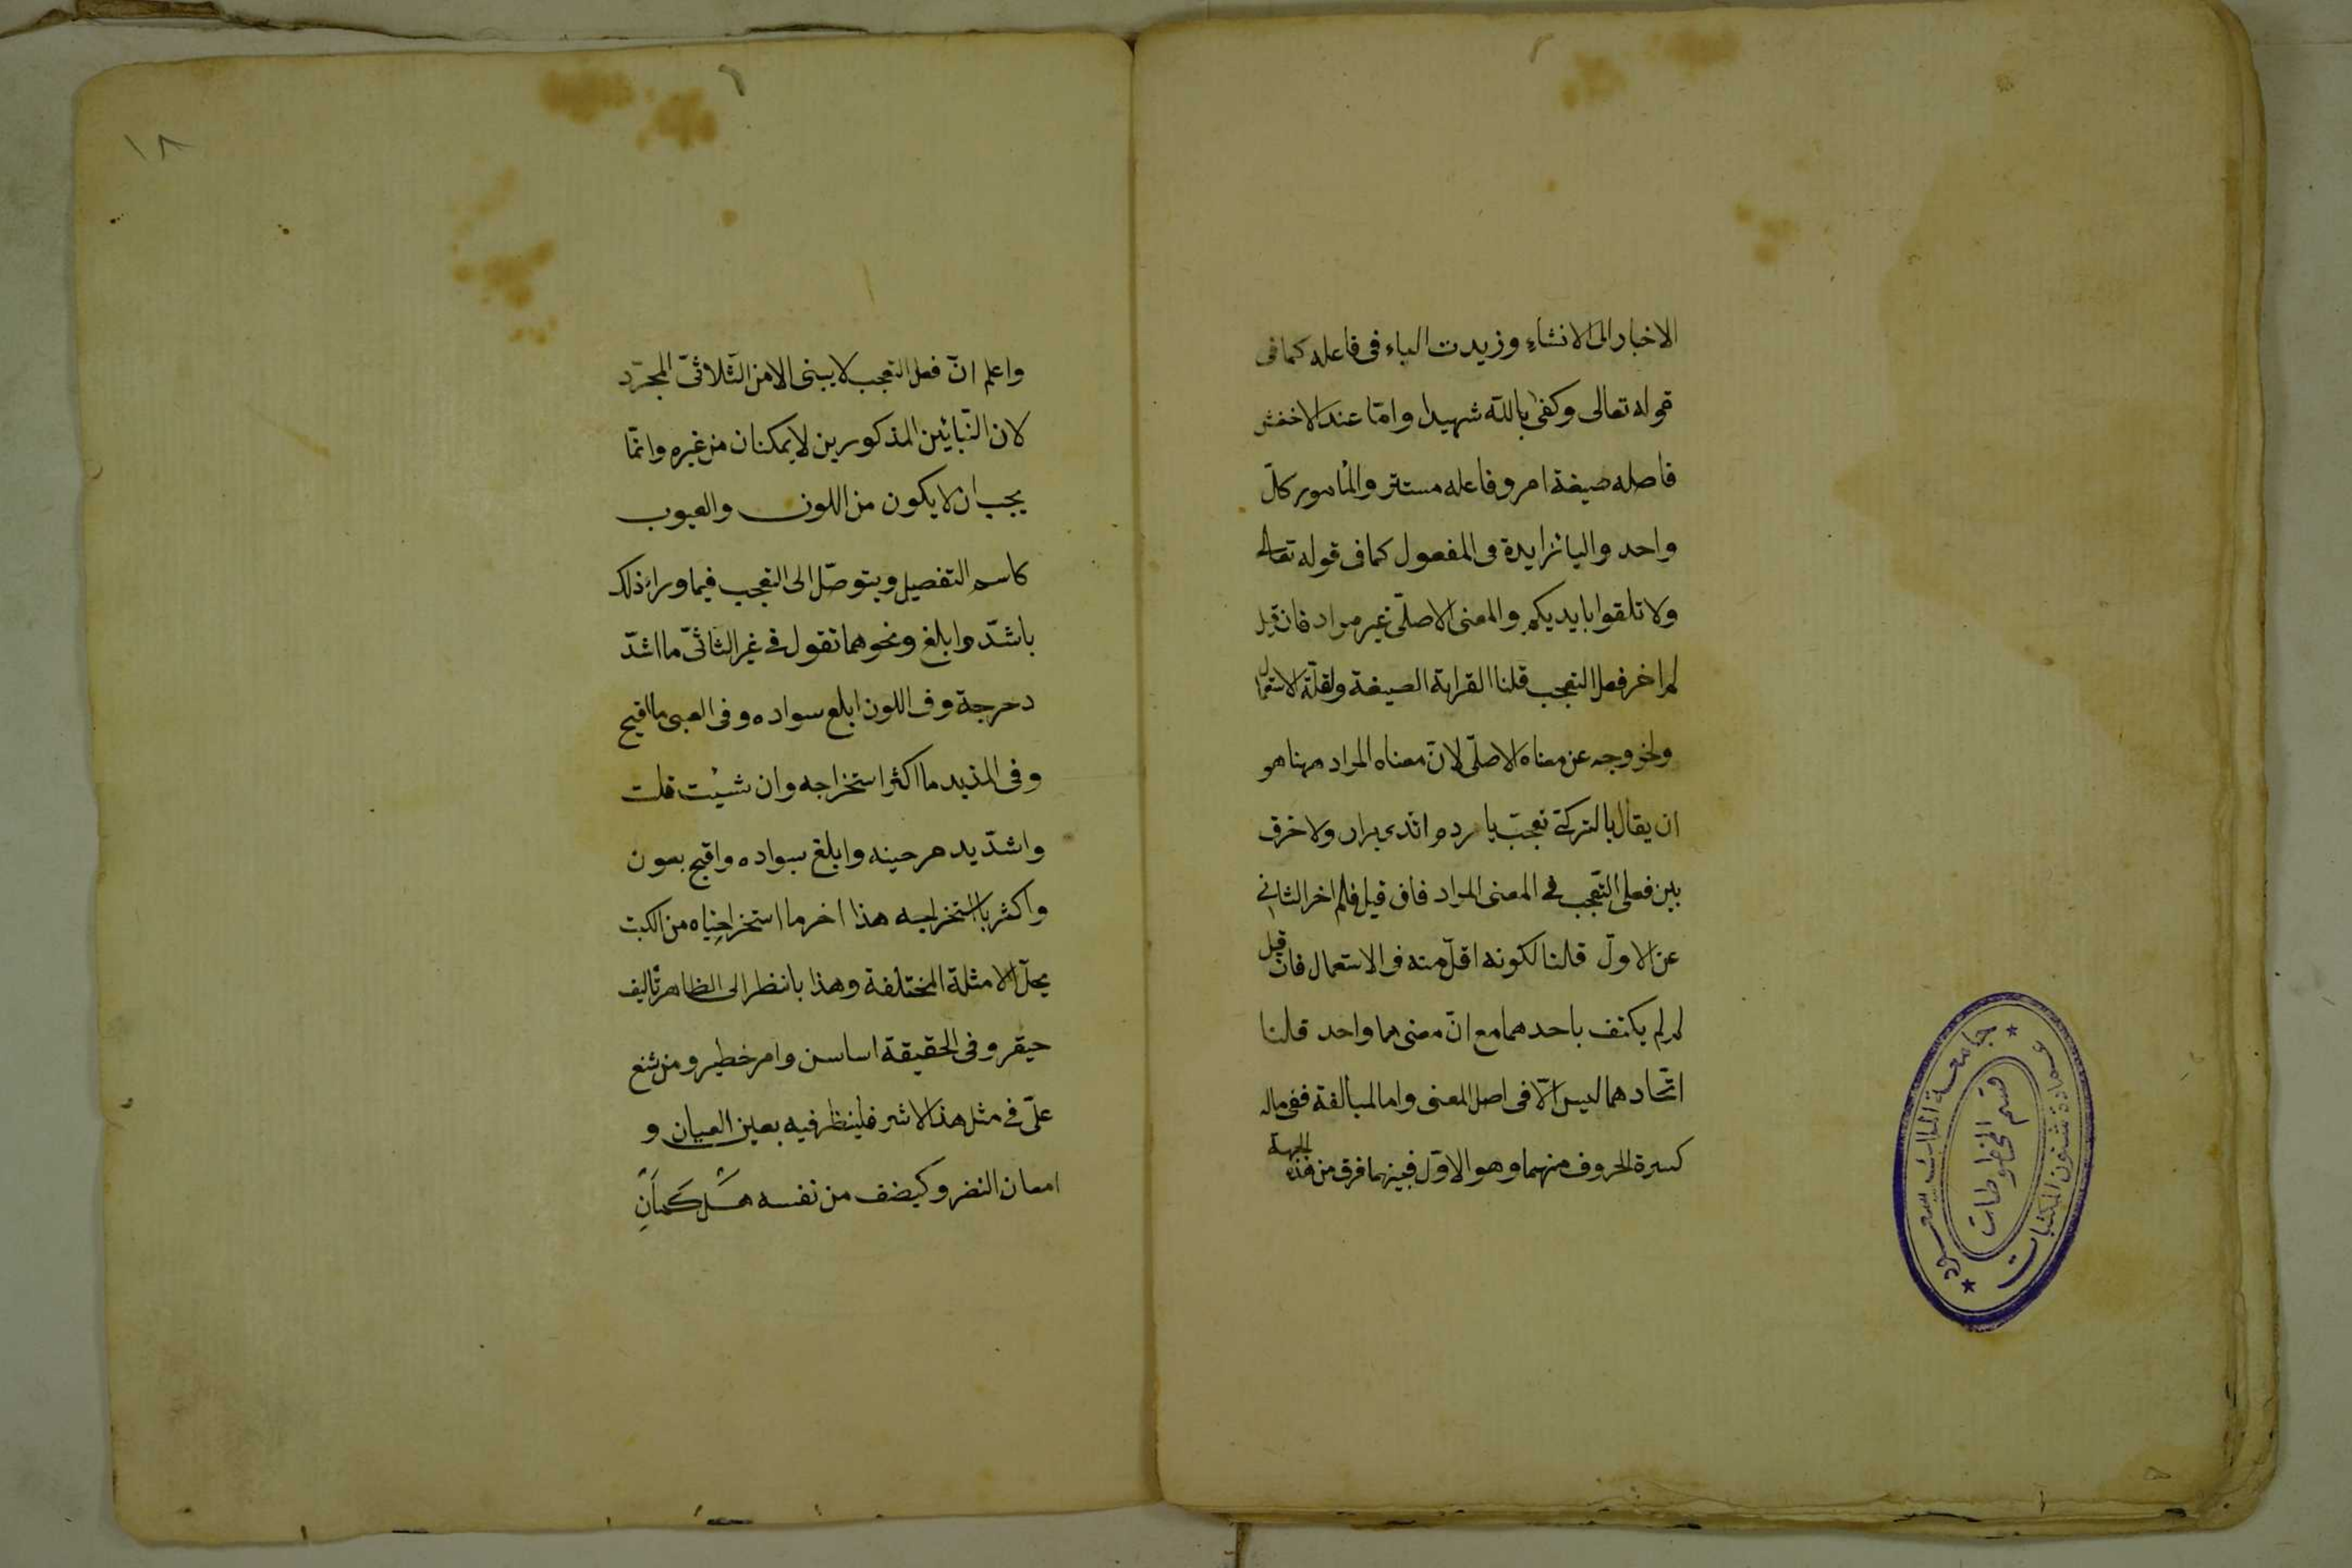 الاخبار الى الانشاءِ وزيدت الباء فى فاعله كما فى
قوله تعالى وكفىٰ بالله شهيدا وامّا عند الاخفش
فاصله صيغة امر وفاعله مستتر والمأمور كلّ
واحد والباء زايدة فى المفعول كما فى قوله تعالى
ولا تلقوا بايديكم والمعنى الاصلّى غير مراد فان قيل
لم اخر فعل التعجب قلنا القرابة الصيغة ولقلّة الاستعمال
ولخروجه عن معناه الاصلّى لانّ معناه المراد ههنا هو
ان يقال بالتركّى نعجب يا ردم اتدى برار ولا خرق
بين فعلى التّعجب فى المعنى المراد فان قيل فلم اخر الثانى
عن الاولّ قلنا لكونه اقلّ منه فى الاستعمال فان قيل
لم لم يكتف باحدهما مع انّ معنىهما واحد قلنا
اتّحادهما ليس الّا فى اصل المعنى واما لمبالغة ففى ماله
كسيرة الحروف منهما وهو الاوّل فبينهما فرق من هذه الجهة
جامعة الملك سعود
قسم المخطوطات
عمادة شئون المكتبات
١٨
واعلم انّ فعل التعجب لا يبنى الا من الثّلاثىّ المجرّد
لان البّنائين المذكورين لا يمكنان من غيره وانمّا
يجب ان لا يكون من اللون والعيوب
كاسم التفصيل ويتوصّل الى التعجب فيما وراء ذلك
باشدّ وابلغ ونحوهما تقول فى غير الثاثىّ ما اشدّ
دحرجة وفى اللون ابلغ سواده وفى العىى ما اقبح
وفى المذيد ما اكثر استخراجه وان شيئت قلت
واشدّ يدحرحينه وابلغ بسواده واقبح بعون
واكثر باستخراجه هذا اخر ما استخراجناه من الكتب
يحلّ الامثلة المختلفة وهذا بانظر الى الظاهر تأليف
حيقر وفى الحقيقة اساسن وامر خطير ومن شنع
علىّ فى مثل هذا الاثر فلينظر فيه بعين العيان و
امعان النضر وكيضف من نفسه